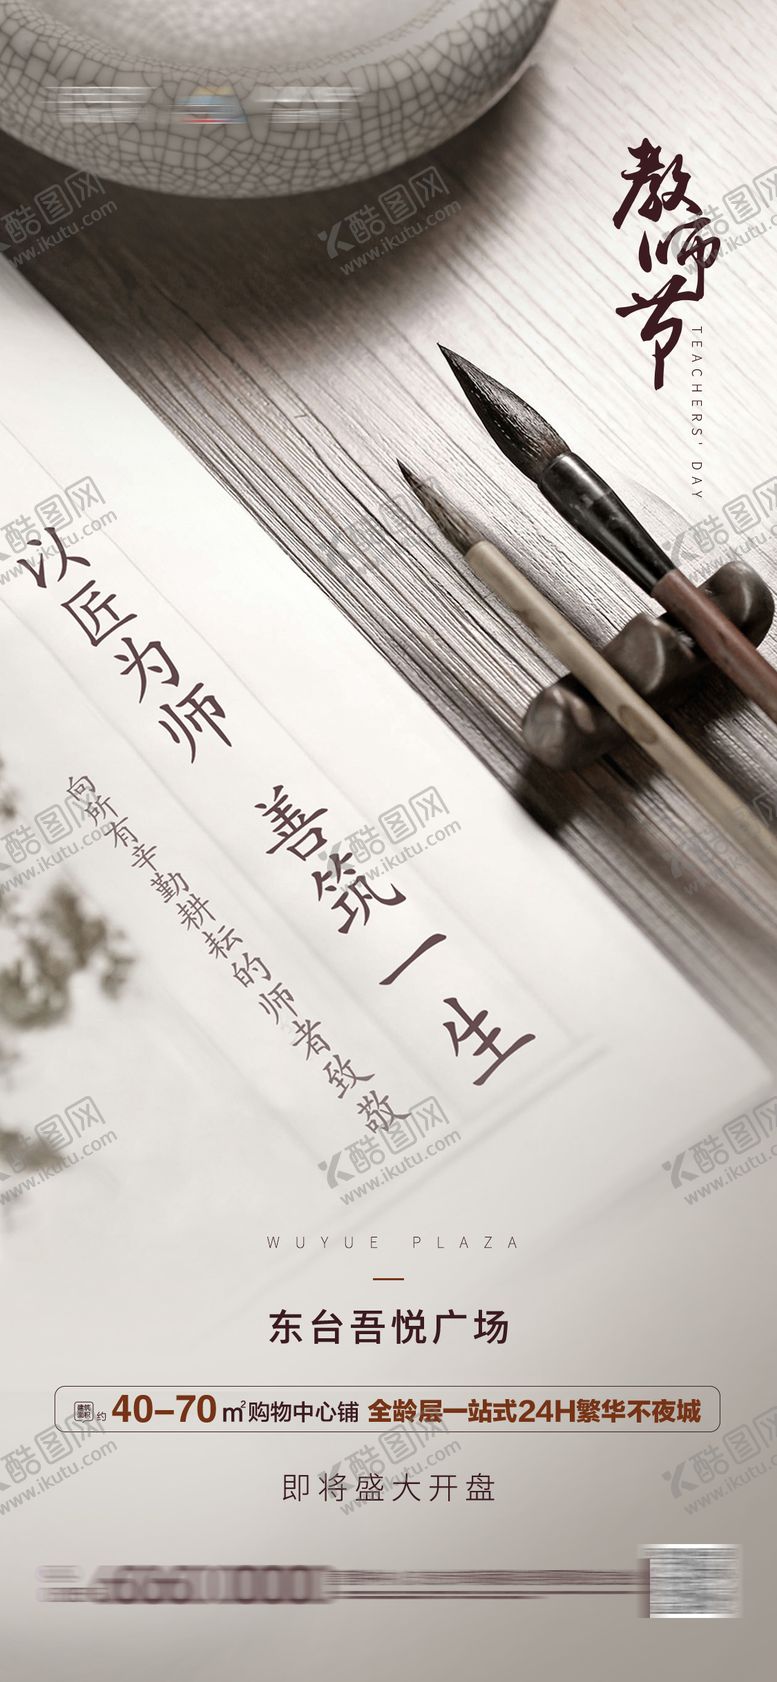 教师节
TEACHERS' DAY
以匠为师 善筑一生
向所有辛勤耕耘的师者致敬
WUYUE PLAZA
东台吾悦广场
建筑面积 约 40-70㎡购物中心铺 全龄层一站式24H繁华不夜城
即将盛大开盘
酷图网
www.ikutu.com